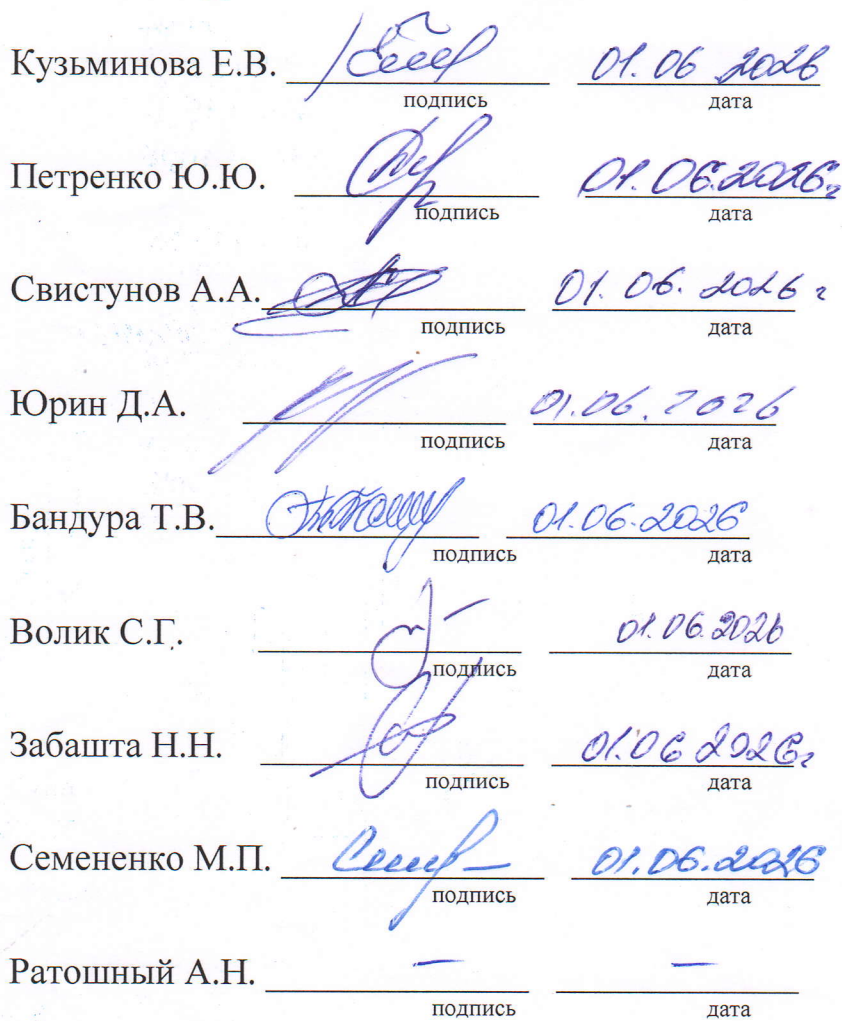 Кузьминова Е.В. 01.06 2026
подпись дата
Петренко Ю.Ю. 01.06.2026г
подпись дата
Свистунов А.А. 01.06.2026 г
подпись дата
Юрин Д.А. 01.06.2026
подпись дата
Бандура Т.В. 01.06.2026
подпись дата
Волик С.Г. 01.06.2026
подпись дата
Забашта Н.Н. 01.06 2026г
подпись дата
Семененко М.П. 01.06.2026
подпись дата
Ратошный А.Н. – –
подпись дата